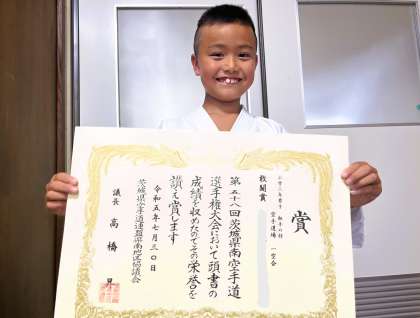 賞
敢闘賞
空手道場 一空会
第五十八回茨城県南空手道
選手権大会において頭書の
成績を収めたのでその栄誉を
讃え賞します
令和五年七月三〇日
茨城県空手道連盟県南地区協議会
議長 高橋 昇